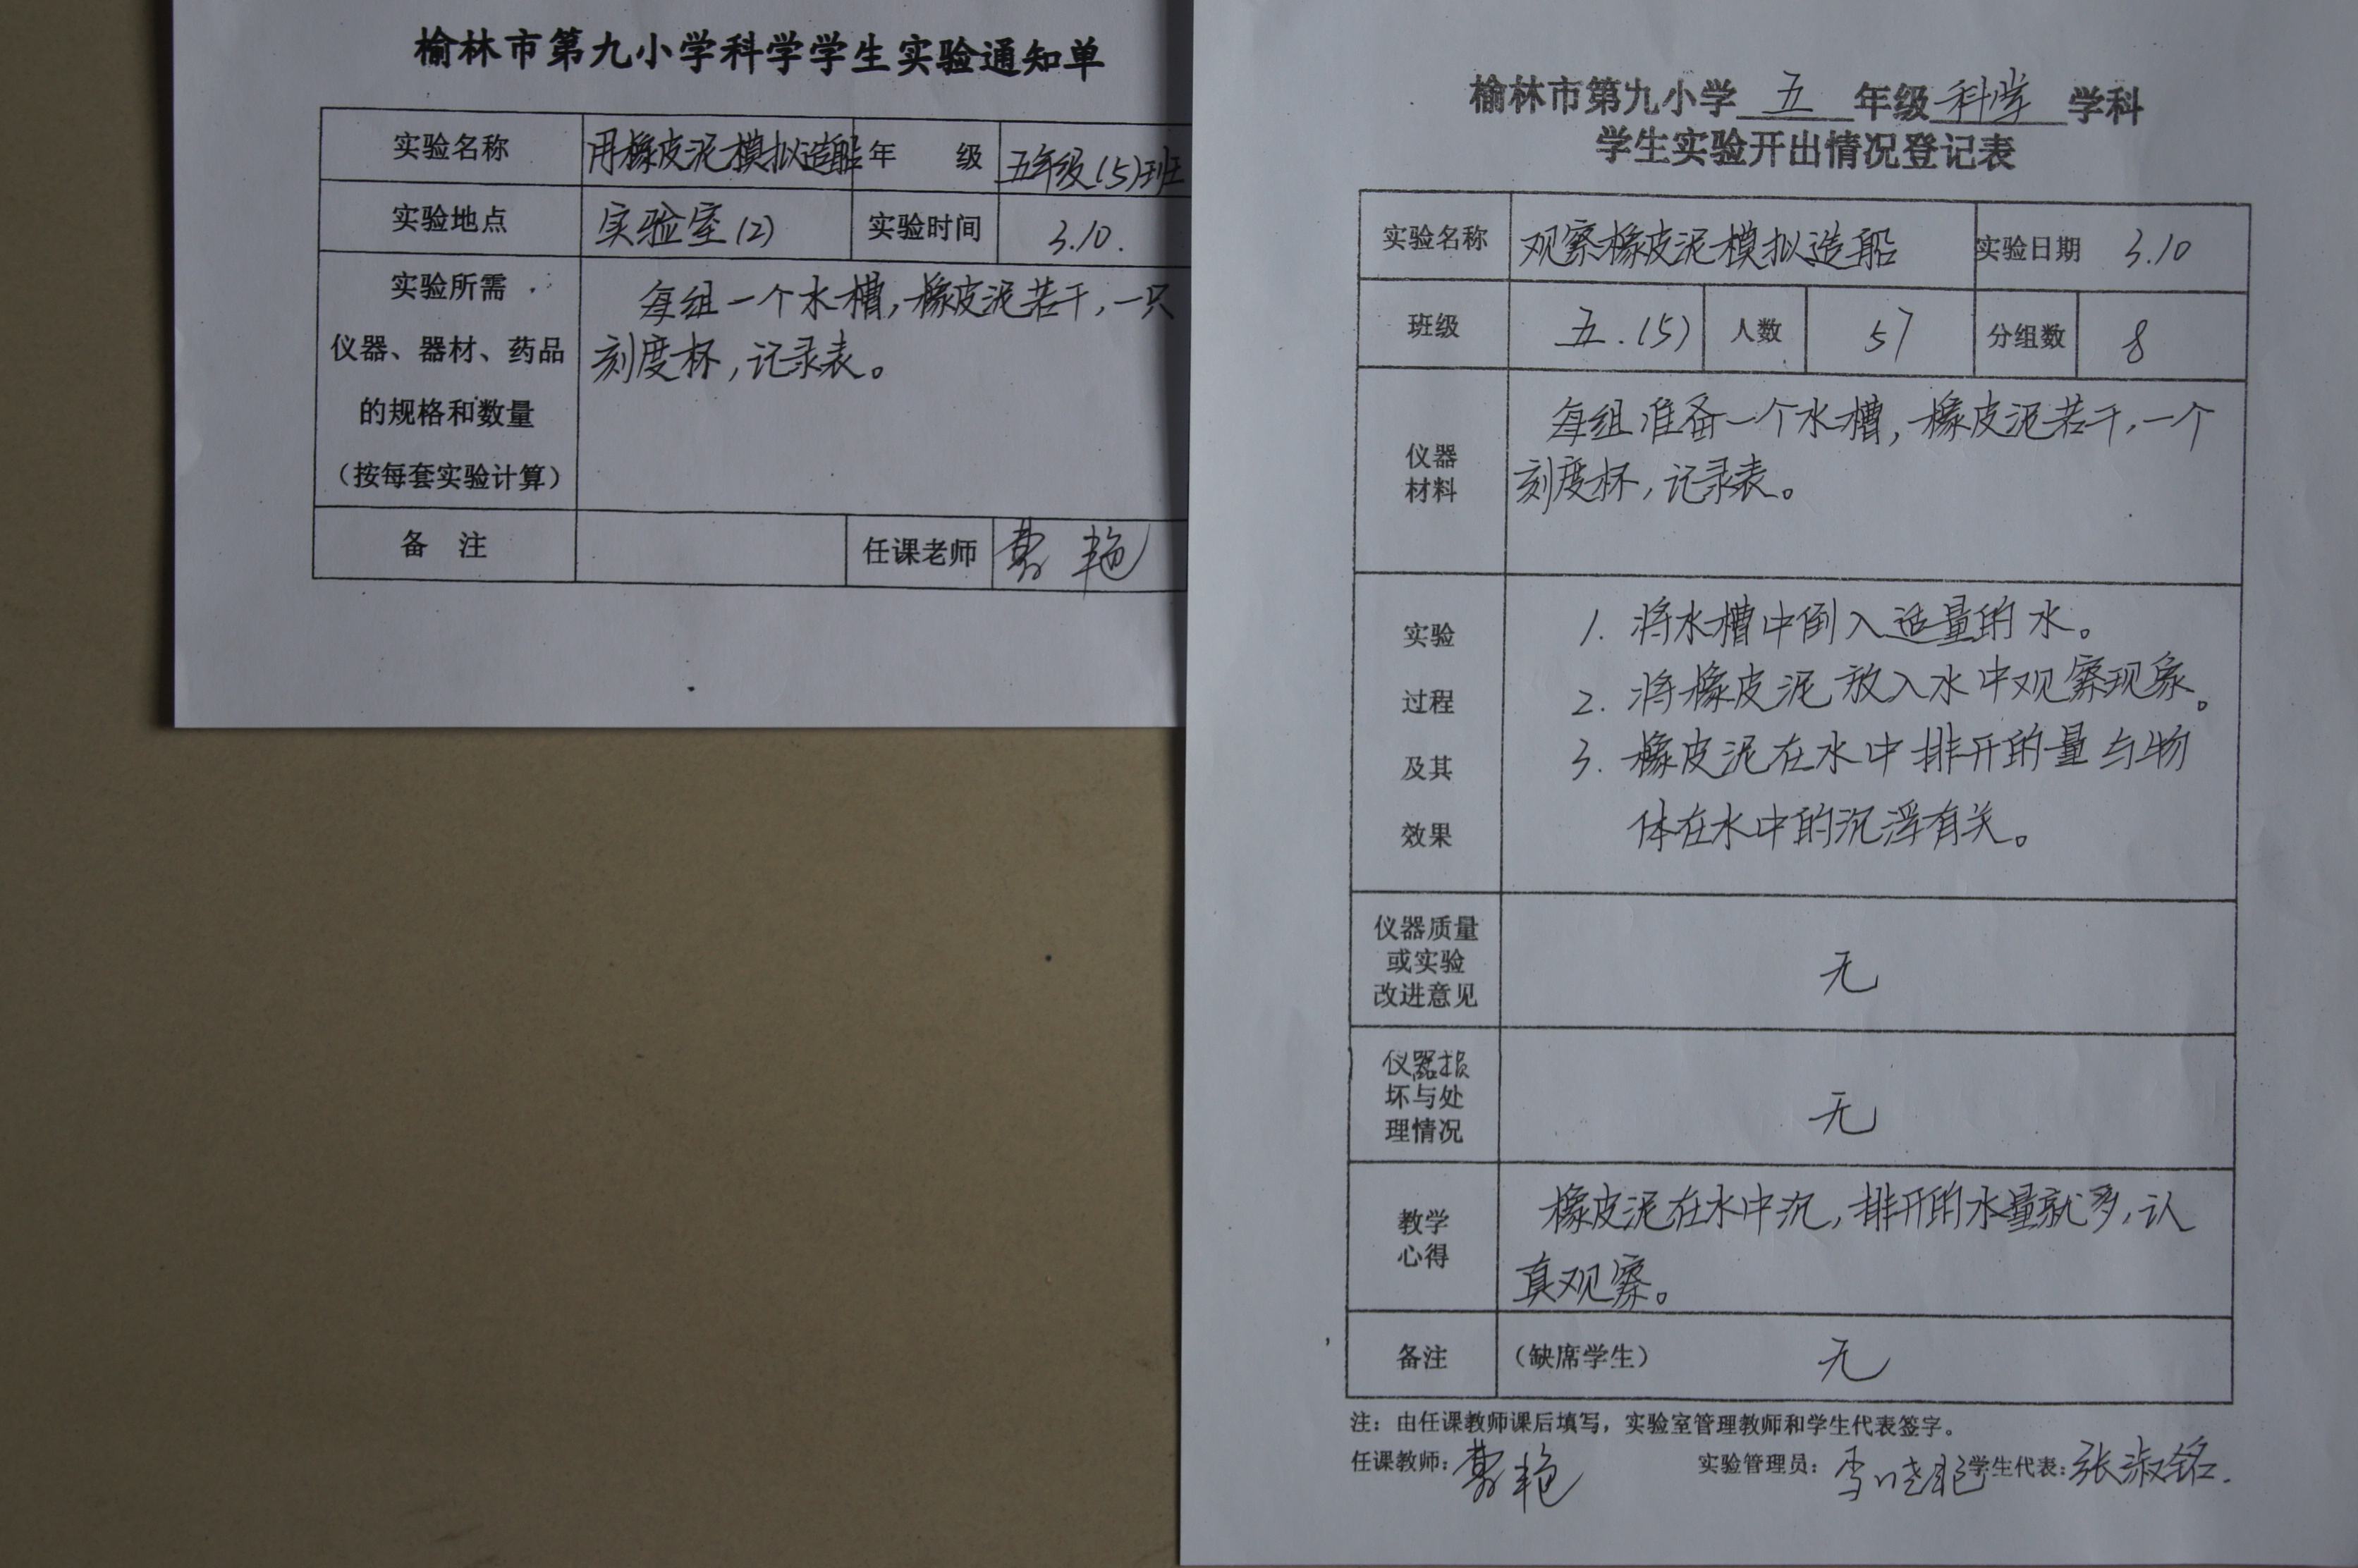 榆林市第九小学科学学生实验通知单
实验名称 用橡皮泥模拟造船 年 级 五年级(5)班
实验地点 实验室(2) 实验时间 3.10.
实验所需
仪器、器材、药品
的规格和数量
（按每套实验计算）
每组一个水槽,橡皮泥若干,一只
刻度杯,记录表。
备 注 任课老师 艳
榆林市第九小学 五 年级 科学 学科
学生实验开出情况登记表
实验名称 观察橡皮泥模拟造船 实验日期 3.10
班级 五.(5) 人数 57 分组数 8
仪器
材料
每组准备一个水槽,橡皮泥若干,一个
刻度杯,记录表。
实验
过程
及其
效果
1. 将水槽中倒入适量的水。
2. 将橡皮泥放入水中观察现象。
3. 橡皮泥在水中排开的量与物
体在水中的沉浮有关。
仪器质量
或实验
改进意见
无
仪器损
坏与处
理情况
无
教学
心得
橡皮泥在水中沉,排开的水量就多,认
真观察。
备注 （缺席学生） 无
注：由任课教师课后填写，实验室管理教师和学生代表签字。
任课教师: 艳 实验管理员: 李晓 学生代表: 张淑铭.